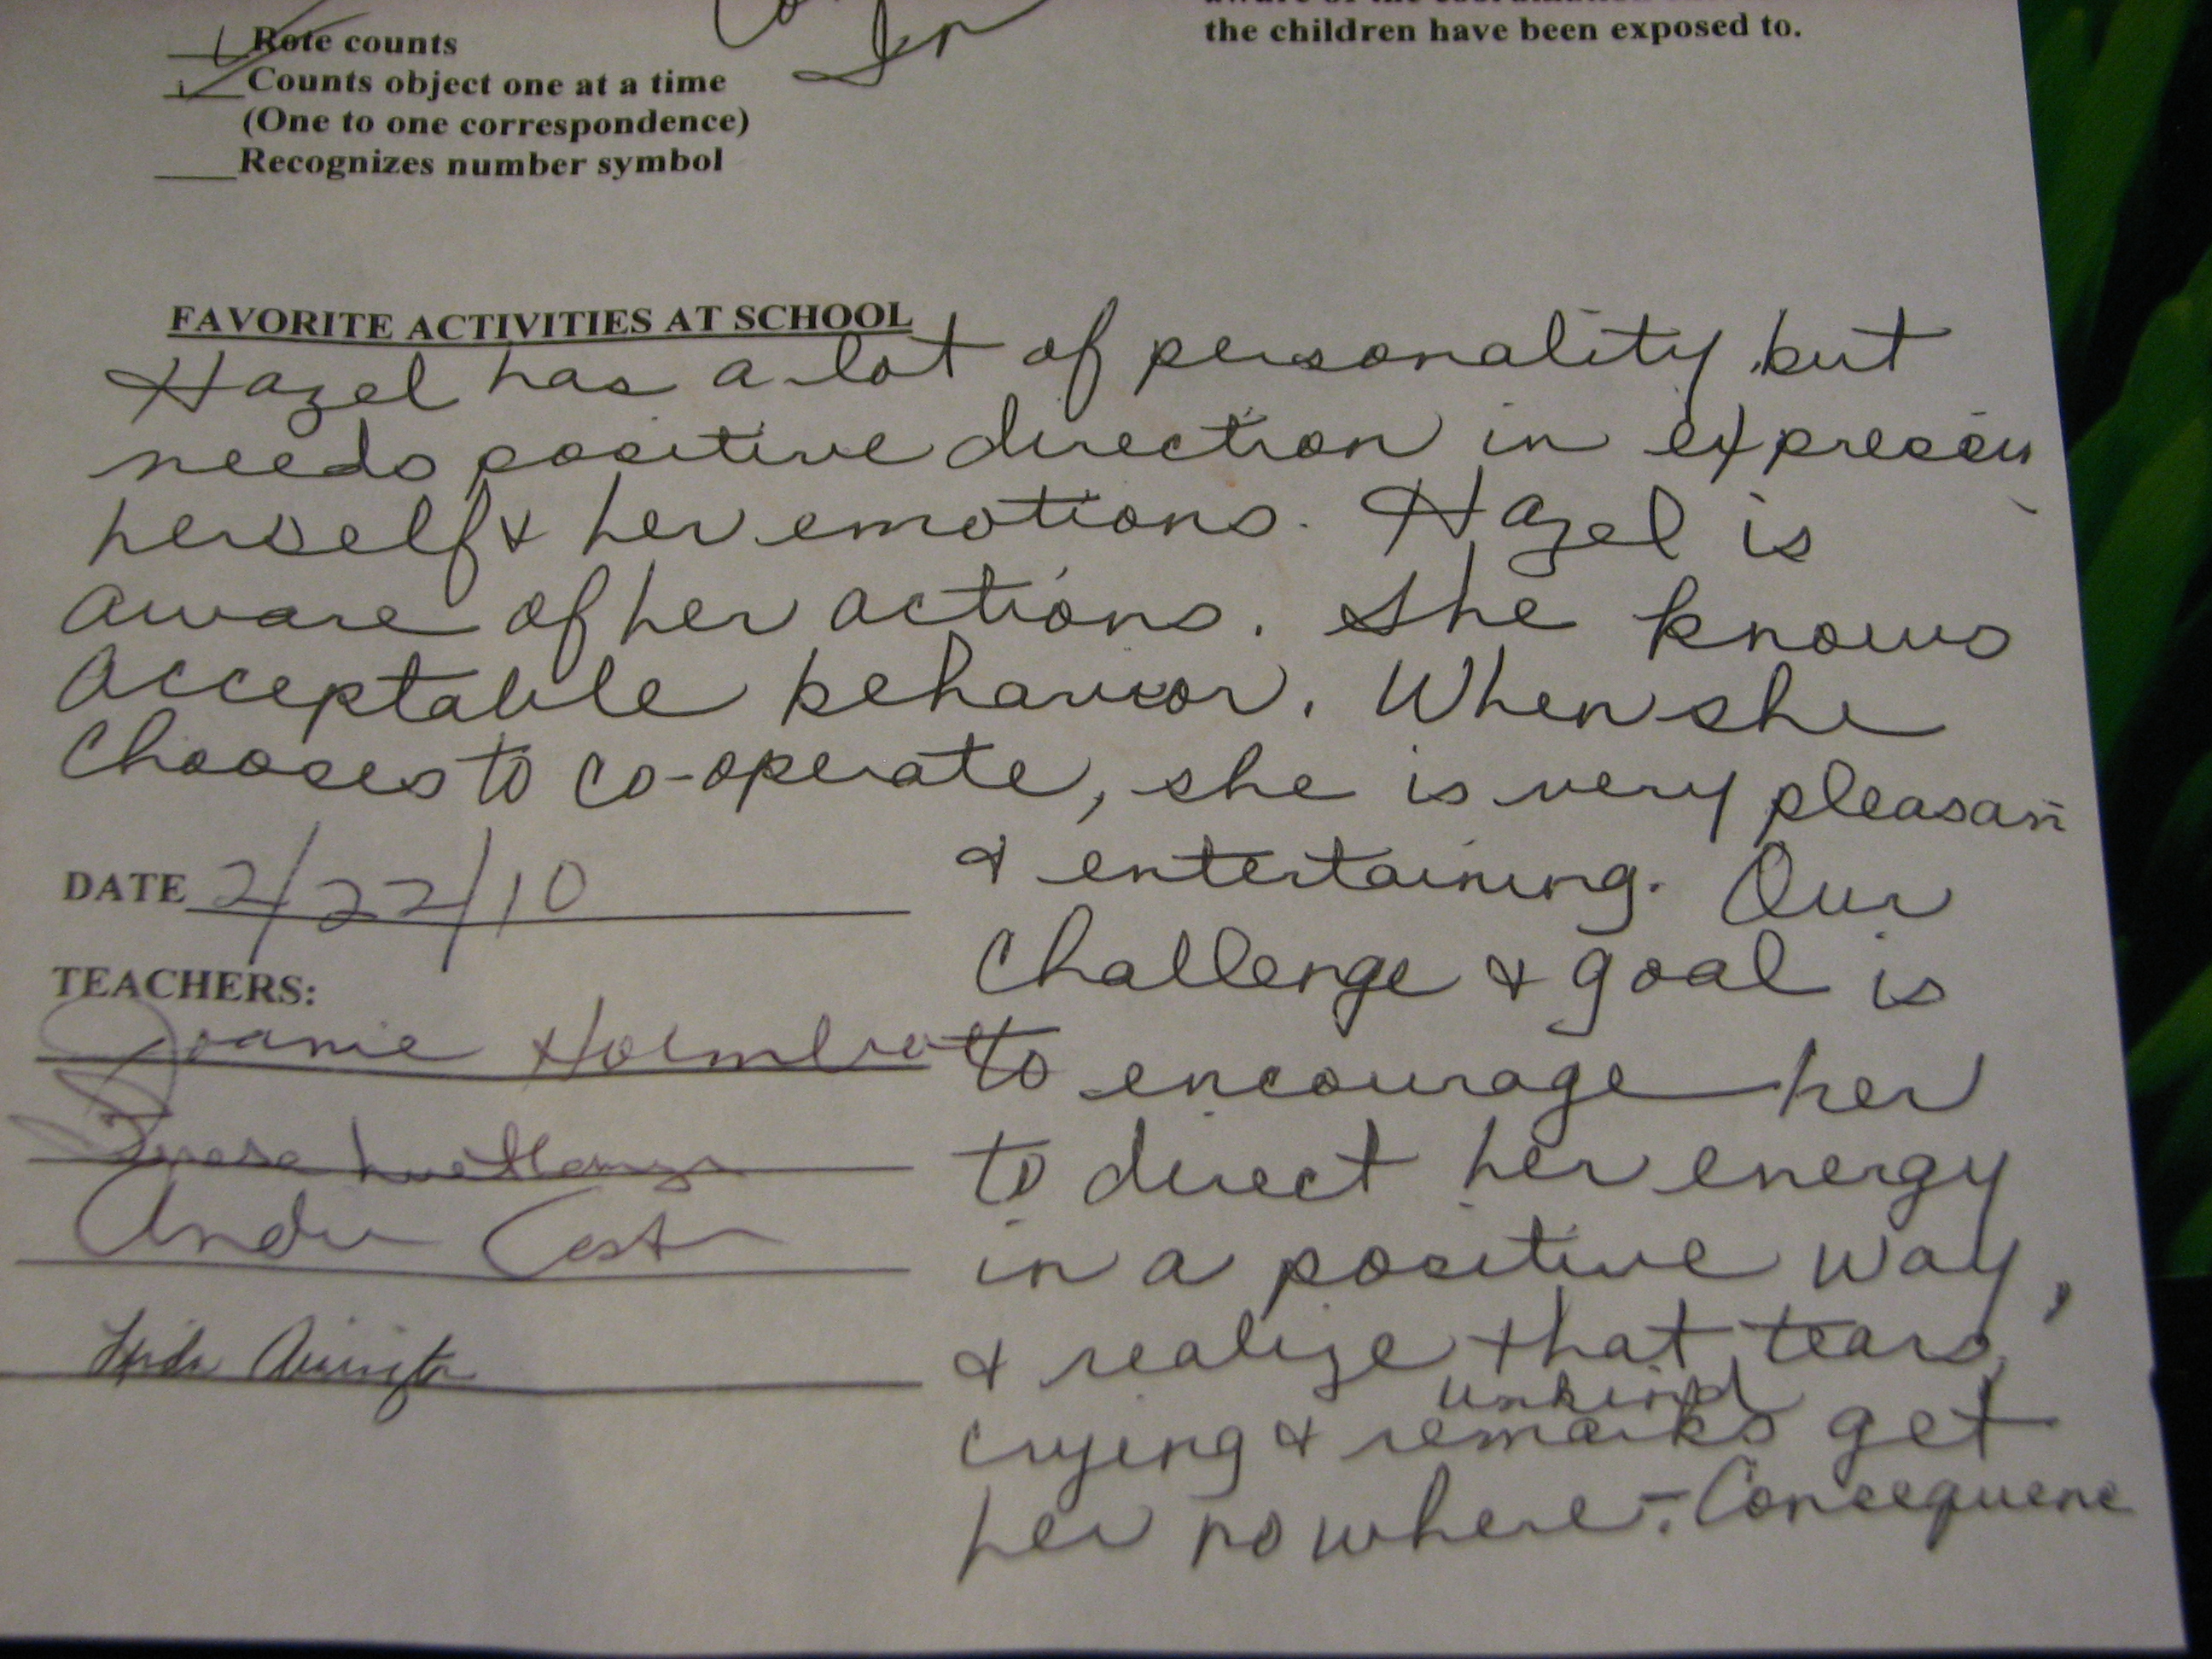 Rote counts
Counts object one at a time
(One to one correspondence)
Recognizes number symbol
the children have been exposed to.
FAVORITE ACTIVITIES AT SCHOOL
Hazel has a lot of personality but
needs positive direction in
herself & her emotions. Hazel is
aware of her actions. She knows
acceptable behavior. When she
chooses to co-operate, she is very pleasan
& entertaining. Our
challenge & goal is
to encourage her
to direct her energy
in a positive way,
& realize that tears,
unkind
crying & remarks get
her no where -. Consequenc
DATE 2/22/10
TEACHERS:
Joanie